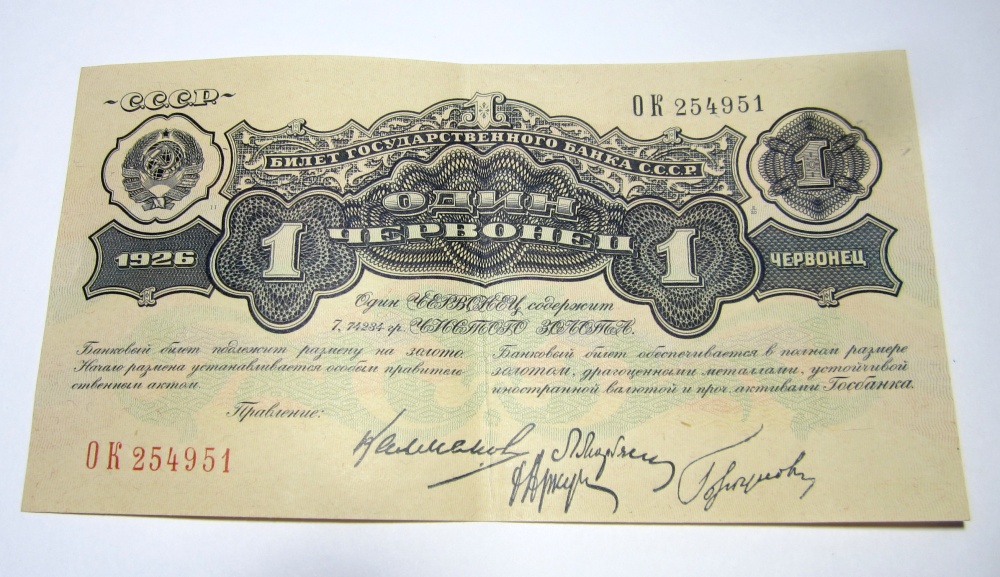 С.С.С.Р.
ОК 254951
1
БИЛЕТ ГОСУДАРСТВЕННОГО БАНКА С.С.С.Р.
1
ОДИН
ЧЕРВОНЕЦ
1926
1
1
ЧЕРВОНЕЦ
Один ЧЕРВОНЕЦ содержит
7,74234 гр. ЧИСТОГО ЗОЛОТА.
Банковый билет подлежит размену на золото.
Начало размена устанавливается особым правитель-
ственным актом.
Банковый билет обеспечивается в полном размере
золотом, драгоценными металлами, устойчивой
иностранной валютой и проч. активами Госбанка.
Правление:
ОК 254951